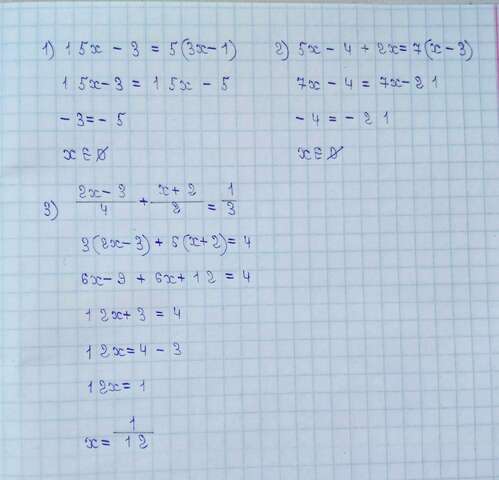 1) 15x - 3 = 5(3x-1)
15x-3 = 15x - 5
-3 = -5
x ∈ ∅
2) 5x - 4 + 2x = 7(x-3)
7x - 4 = 7x - 21
-4 = -21
x ∈ ∅
3) (2x-3)/4 + (x+2)/2 = 1/3
3(2x-3) + 6(x+2) = 4
6x-9 + 6x+12 = 4
12x+3 = 4
12x = 4 - 3
12x = 1
x = 1/12